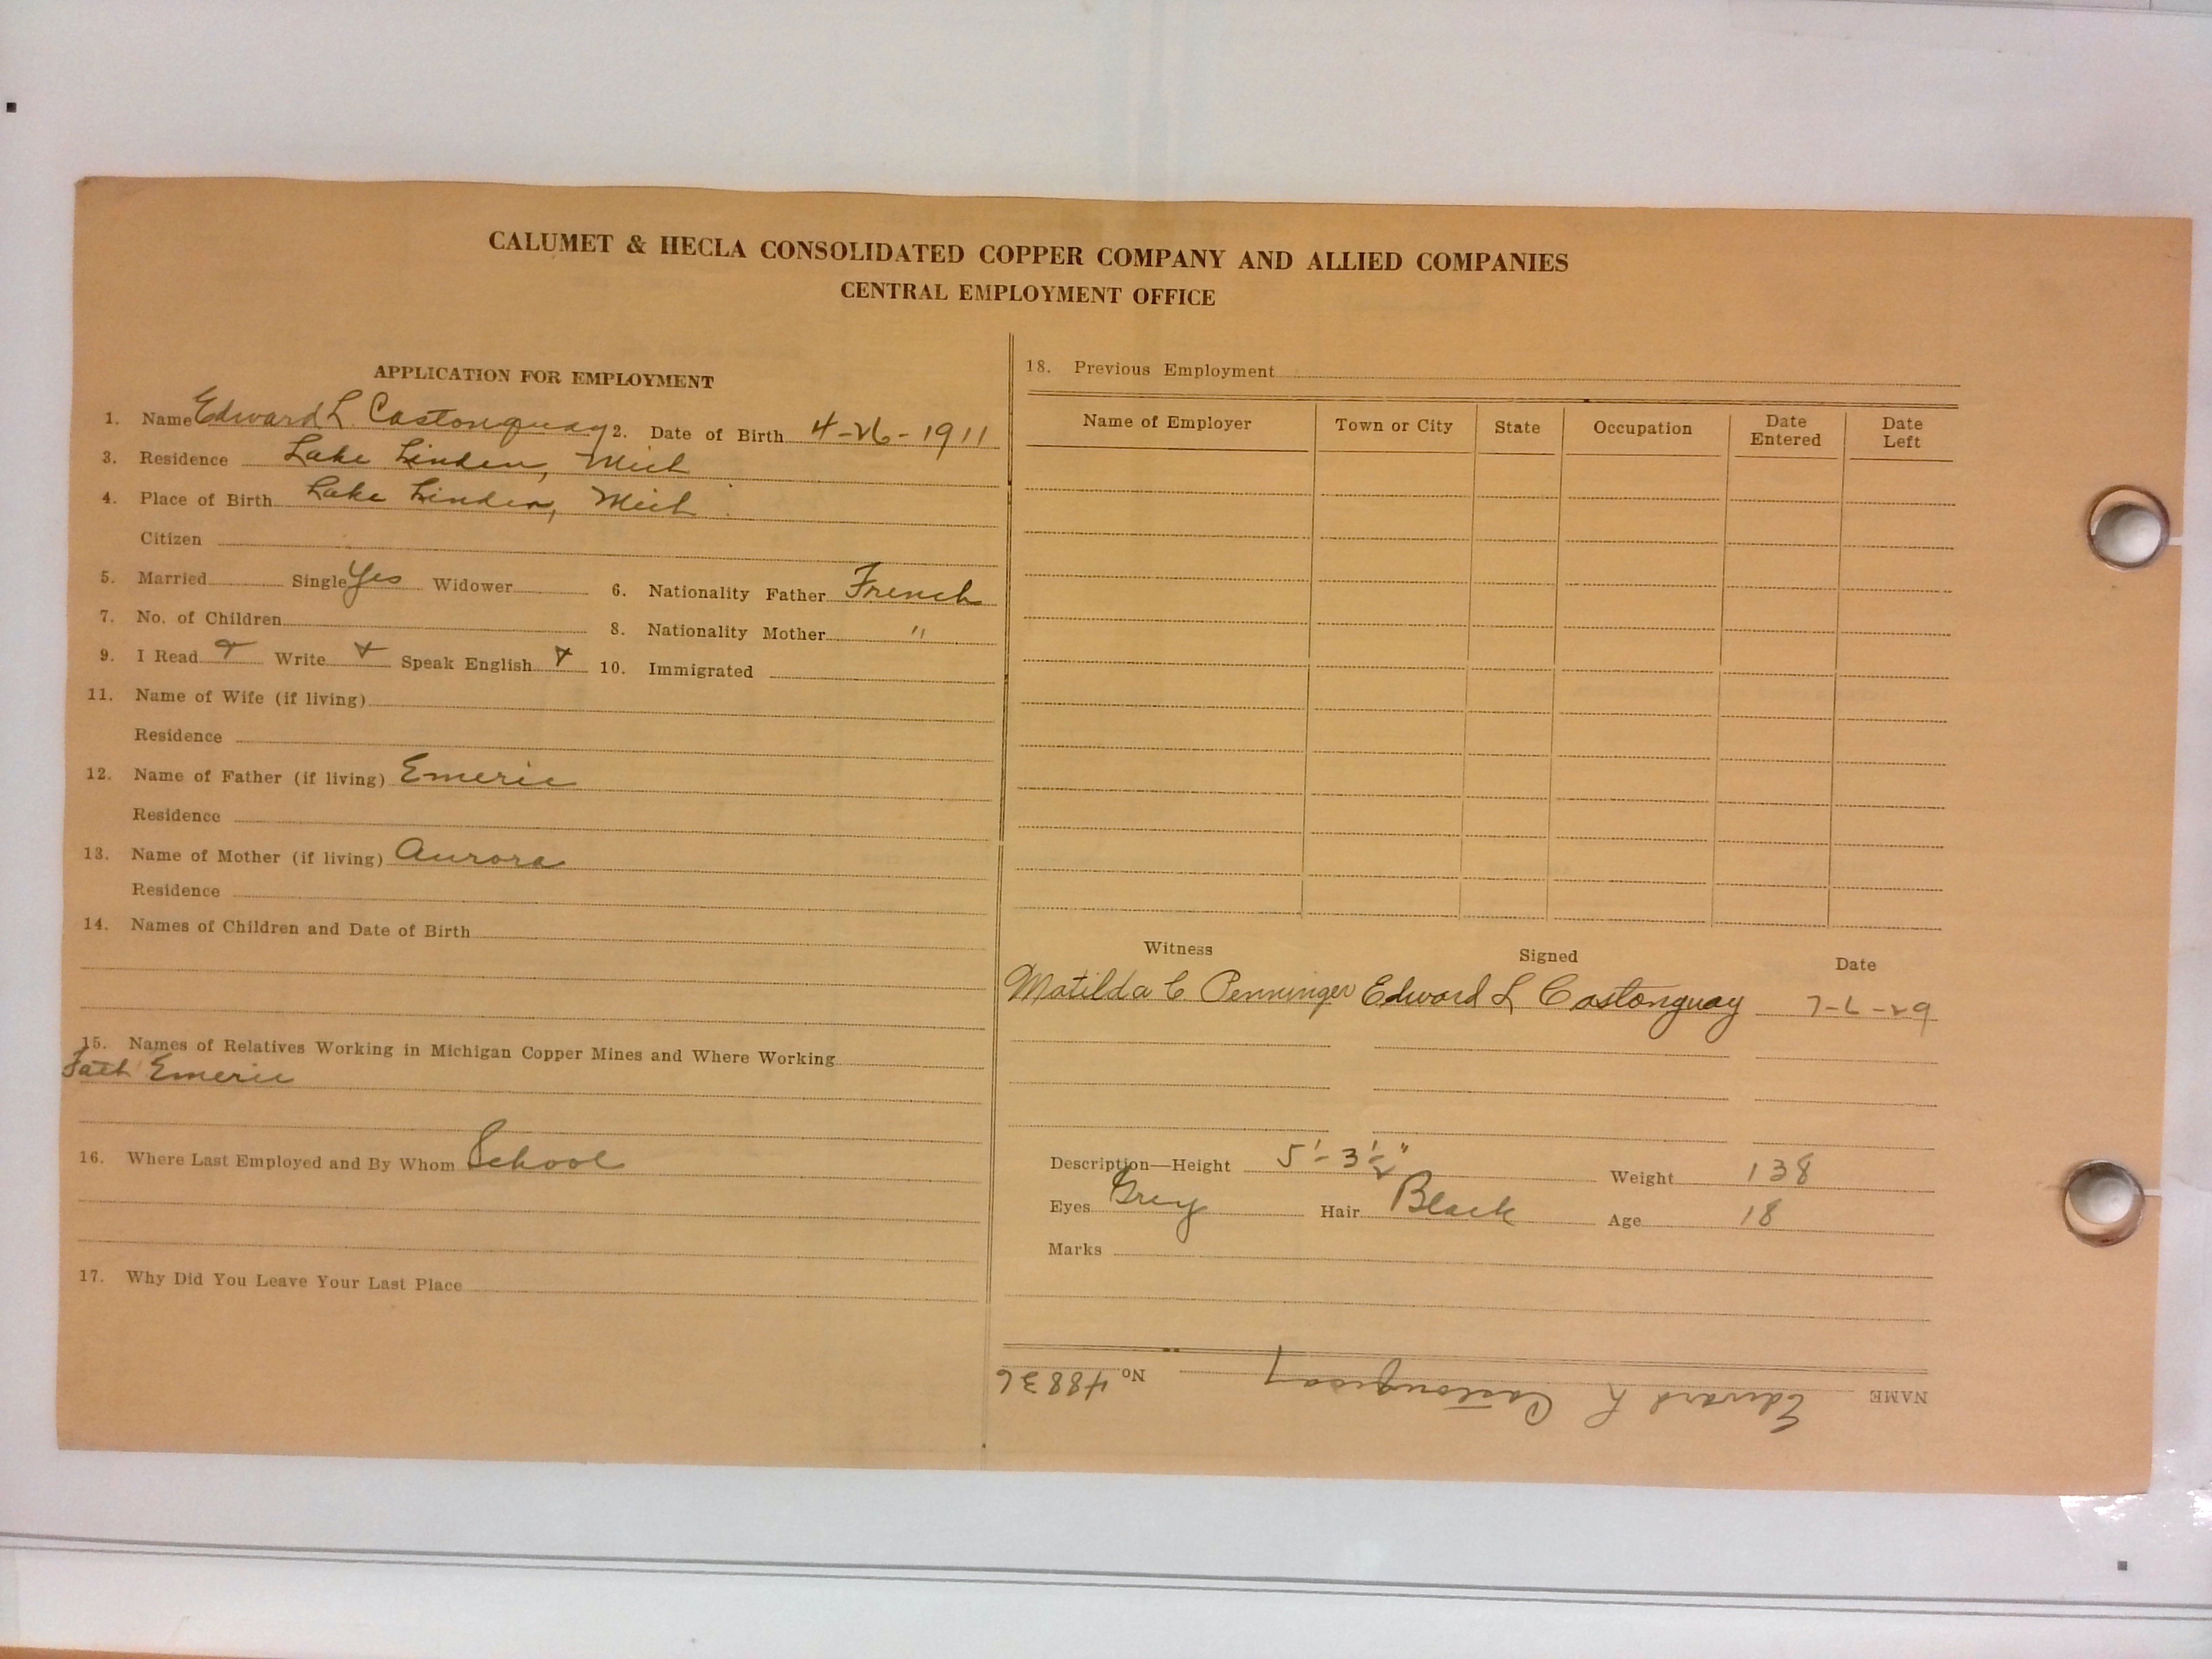 CALUMET & HECLA CONSOLIDATED COPPER COMPANY AND ALLIED COMPANIES
CENTRAL EMPLOYMENT OFFICE
APPLICATION FOR EMPLOYMENT
1. Name Edward L Castonguay 2. Date of Birth 4-26-1911
3. Residence Lake Linden, Mich
4. Place of Birth Lake Linden, Mich
Citizen
5. Married Single Yes Widower 6. Nationality Father French
7. No. of Children 8. Nationality Mother "
9. I Read Write Speak English 10. Immigrated
11. Name of Wife (if living)
Residence
12. Name of Father (if living) Emeric
Residence
13. Name of Mother (if living) Aurora
Residence
14. Names of Children and Date of Birth
15. Names of Relatives Working in Michigan Copper Mines and Where Working
Fath Emeric
16. Where Last Employed and By Whom School
17. Why Did You Leave Your Last Place
18. Previous Employment
Name of Employer Town or City State Occupation Date Entered Date Left
Witness Signed Date
Matilda C Penninger Edward L Castonguay 7-6-29
Description—Height 5'-3½" Weight 138
Eyes Grey Hair Black Age 18
Marks
NAME Edward L Castonguay No. 48836